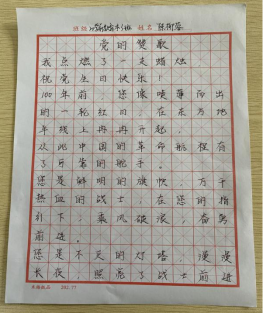 班级 姓名
党的赞歌
我点燃了一支蜡烛
祝党生日快乐！
100年前，您像喷薄而出
的一轮红日，在东方地
平线上冉冉升起，
从此中国的革命航程有
了可靠的舵手。
您是鲜明的旗帜，万千
热血的战士，在您的指
引下，乘风破浪，奋勇
前进。
您是不灭的灯塔，漫漫
长夜，照亮了战士前进